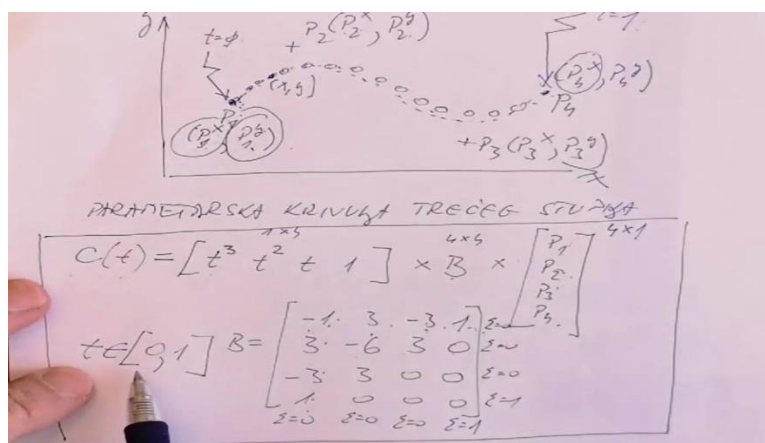 y
t=ø
+ P₂(P₂ˣ, P₂ʸ)
t=1
(x,y)
(P₄ˣ, P₄ʸ)
P₄
P₁
(P₁ˣ, P₁ʸ)
+ P₃(P₃ˣ, P₃ʸ)
x
PARAMETARSKA KRIVULJA TREĆEG STUPNJA
1×4 4×4 4×1
C(t) = [t³ t² t 1] × B × [P₁
P₂
P₃
P₄]
t∈[0,1] B = [-1 3 -3 1 Σ=0
3 -6 3 0 Σ=0
-3 3 0 0 Σ=0
1 0 0 0] Σ=1
Σ=0 Σ=0 Σ=0 Σ=1